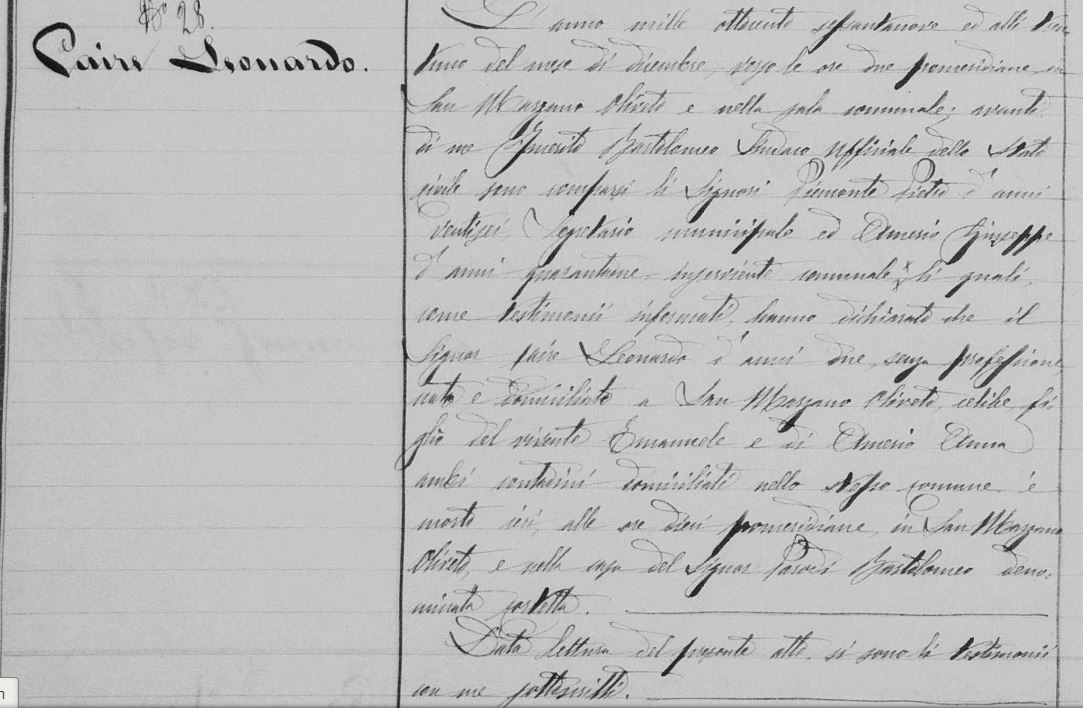 N° 28.
Paire Leonardo.
L'anno mille ottocento settantanove ed alli trent
uno del mese di dicembre, verso le ore due pomeridiane, in
San Marzano Oliveto e nella sala comunale; avanti
di me Bartolomeo Sindaco Uffiziale dello Stato
civile sono comparsi li Signori Piemonte Pietro d'anni
ventisei Segretario municipale ed Amerio Giuseppe
d'anni inserviente comunale li quali,
come testimonii informati, hanno dichiarato che il
Signor Paire Leonardo d'anni due, senza professione
nato e domiciliato a San Marzano Oliveto, celibe, fi-
glio del vivente Emanuele e di Amerio Anna
ambi contadini domiciliati nello stesso comune, è
morto ieri, alle ore dieci pomeridiane, in San Marzano
Oliveto, e nella casa del Signor Bartolomeo deno-
minata
Data lettura del presente atto, si sono li testimonii
con me sottoscritti.